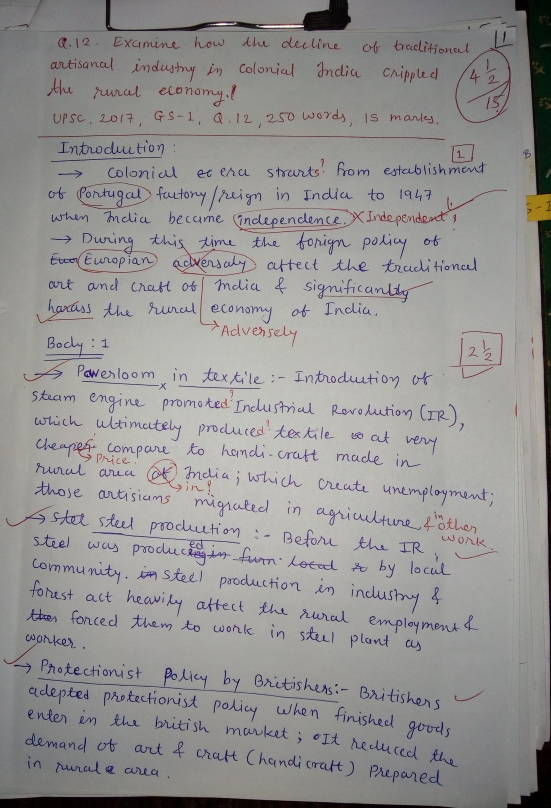 11
Q.12. Examine how the decline of traditional
artisanal industry in colonial India crippled
the rural economy.!
4 1/2
15
UPSC, 2017, GS-1, Q.12, 250 words, 15 marks.
Introduction:
1
→ Colonial era strarts! from establishment
of Portugal factory/reign in India to 1947
when India became independence. X Independent!
→ During this time the forign policy of
Europian adversaly affect the traditional
art and craft of India & significantly
harass the rural economy of India.
Adversely
Body: 1
2 1/2
→ Powerloom in textile :- Introduction of
steam engine promoted! Industrial Revolution (IR),
which ultimately produced! textile at very
cheaper compare to handi-craft made in
Price
rural area of India; which create unemployment;
in!
those artisians migrated in agriculture & in other
work.
→ steel production :- Before the IR,
steel was produced by local
community. Steel production in industry &
forest act heavily affect the rural employment &
forced them to work in steel plant as
worker.
→ Protectionist Policy by Britishers:- Britishers
adepted protectionist policy when finished goods
enter in the british market; It reduced the
demand of art & craft (handicraft) Prepared
in rural area.